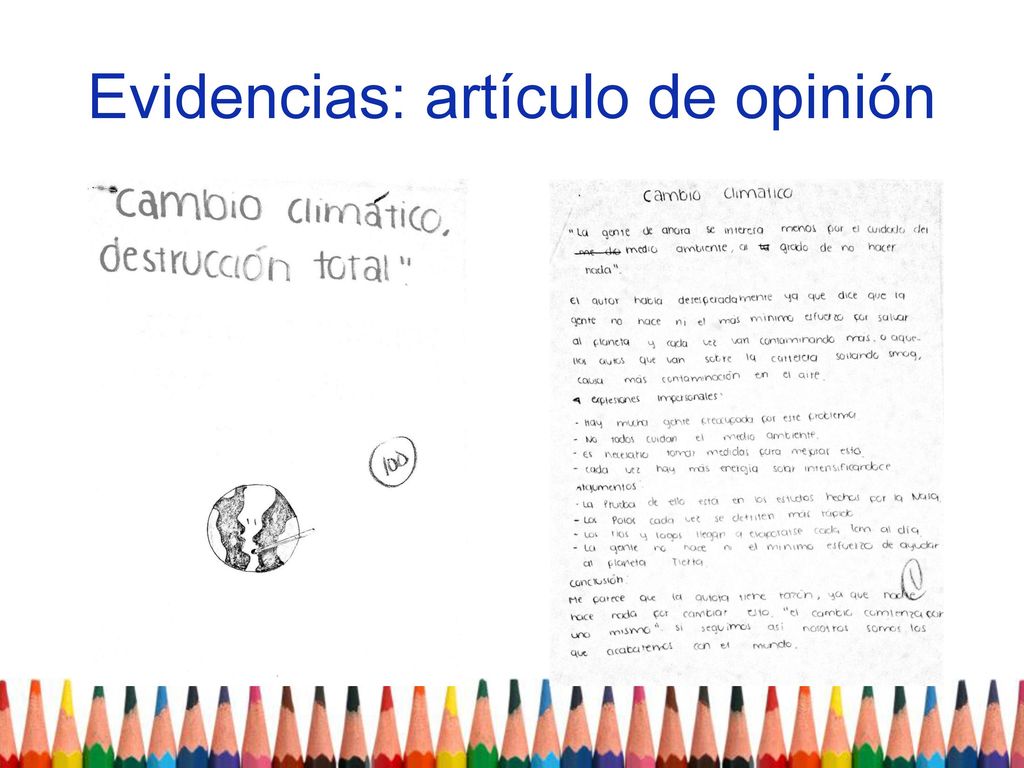 Evidencias: artículo de opinión
"Cambio climático,
destrucción total"
100
Cambio climático
"La gente de ahora se interesa menos por el cuidado del
me do medio ambiente, al grado de no hacer
nada".
El autor habla desesperadamente ya que dice que la
gente no hace ni el más mínimo esfuerzo por salvar
al planeta y cada vez van contaminando más. o aque-
llos autos que van sobre la carretera soltando smog,
causa más contaminación en el aire.
expresiones impersonales:
- Hay mucha gente preocupada por este problema
- No todos cuidan el medio ambiente.
- es necesario tomar medidas para mejorar esto.
- cada vez hay más energía solar intensificandoce
Argumentos:
- La Prueba de ello esta en los estudios hechos por la Nasa.
- Los Polos cada vez se derriten más rápido
- Los rios y lagos llegan a evaporarse cada 1cm al día
- La gente no hace ni el mínimo esfuerzo de ayudar
al planeta Tierra
conclusión:
Me parece que la autora tiene razón, ya que nadie
hace nada por cambiar esto. "el cambio comienza por
uno mismo". si seguimos así nosotros somos los
que acabaremos con el mundo.